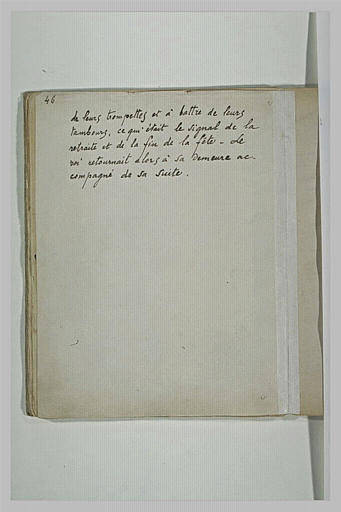 46
de leurs trompettes et à battre de leurs
tambours, ce qui était le signal de la
retraite et de la fin de la fête - Le
roi retournait alors à sa demeure ac-
compagné de sa suite.